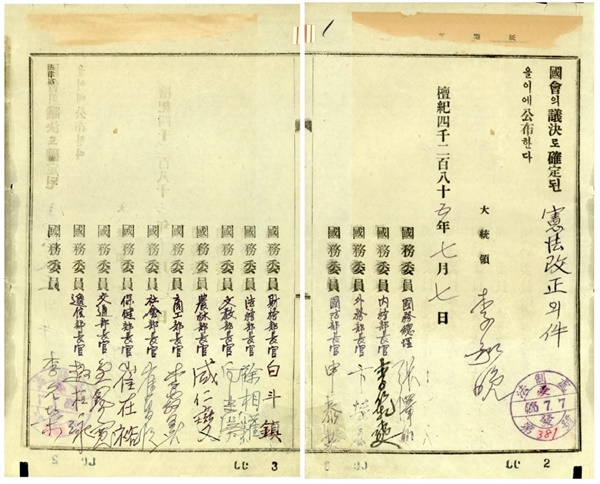 國會의 議決로 確定된 憲法改正의件
을이에 公布한다
檀紀四千二百八十五年七月七日
大統領 李承晩
國務委員 國務總理 張澤相
國務委員 內務部長官 李範奭
國務委員 外務部長官 卞榮泰
國務委員 國防部長官 申泰英
國務委員 財務部長官 白斗鎮
國務委員 法務部長官 徐相權
國務委員 文敎部長官
國務委員 農林部長官 咸仁燮
國務委員 商工部長官 李敎善
國務委員 社會部長官 崔昌順
國務委員 保健部長官 崔在裕
國務委員 交通部長官 金錫寬
國務委員 遞信部長官 趙柱泳
7.7
381
2
3